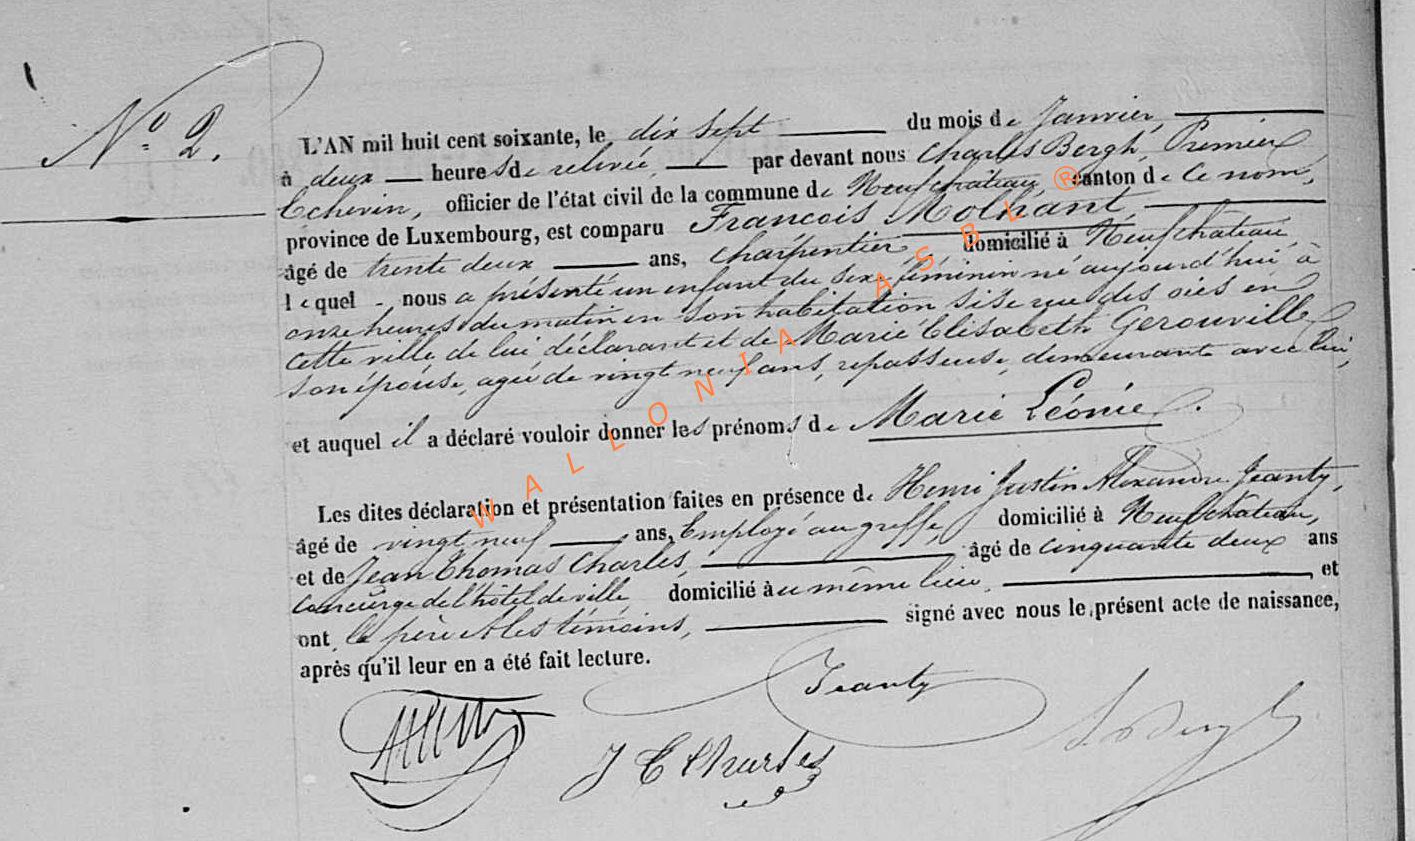 N° 2.
L'AN mil huit cent soixante, le dix sept du mois de Janvier,
à deux heures de relevée, par devant nous Charles Bergh, Premier
Echevin, officier de l'état civil de la commune de Neufchâteau, canton de Ce nom,
province de Luxembourg, est comparu François Molhant,
âgé de trente deux ans, charpentier, domicilié à Neufchâteau
lequel nous a présenté un enfant du sexe féminin né aujourd'hui à
onze heures du matin en son habitation sise rue des oies en
cette ville de lui déclarant et de Marie Elisabeth Gerouville
son épouse, agée de vingt neuf ans, repasseuse, demeurante avec lui,
et auquel il a déclaré vouloir donner les prénoms de Marie Léonie.
Les dites déclaration et présentation faites en présence de Henri Justin Alexandre Jeanty,
âgé de vingt neuf ans, Employé au greffe, domicilié à Neufchâteau,
et de Jean Thomas Charles, âgé de cinquante deux ans
concierge de l'hôtel de ville domicilié au même lieu, et
ont, le père et les témoins, signé avec nous le présent acte de naissance,
après qu'il leur en a été fait lecture.
Jeanty
J T Charles
WALLONIA ASBL ®